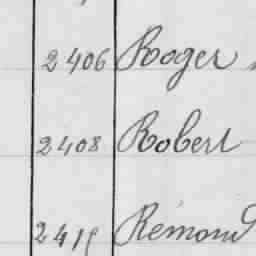 2406 Roger
2408 Robert
Rémond